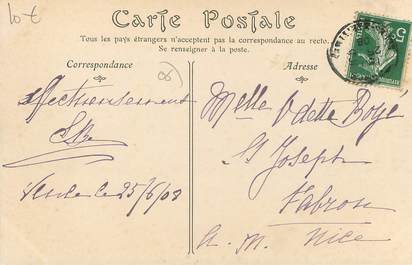 10 €
Carte Postale
Tous les pays étrangers n'acceptent pas la correspondance au recto.
Se renseigner à la poste.
Correspondance
Adresse
06
5
Affectueusement
SB
Vence le 25/6/08
Melle Odette Boyé
St Joseph
Fabron
A. M. Nice